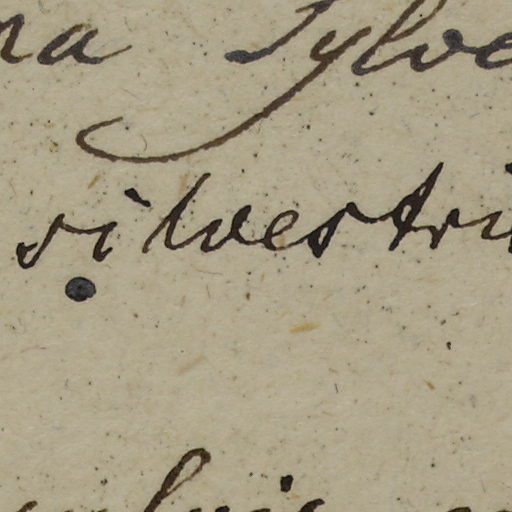 na Sylve
silvestri